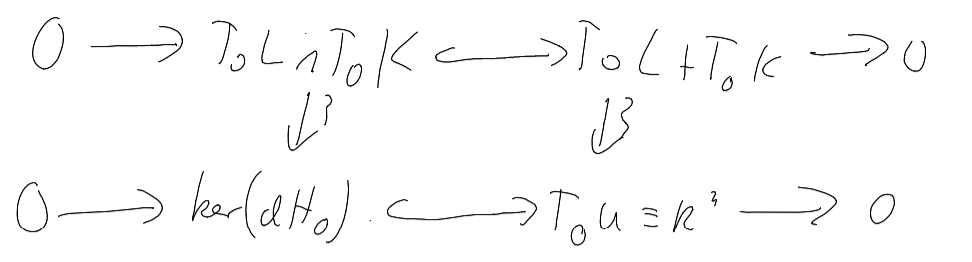 0 ⟶ T₀L ∩ T₀K ↪ T₀L + T₀K ⟶ 0
↓≀ ↓≀
0 ⟶ ker(dH₀) ↪ T₀U ≡ R³ ⟶ 0